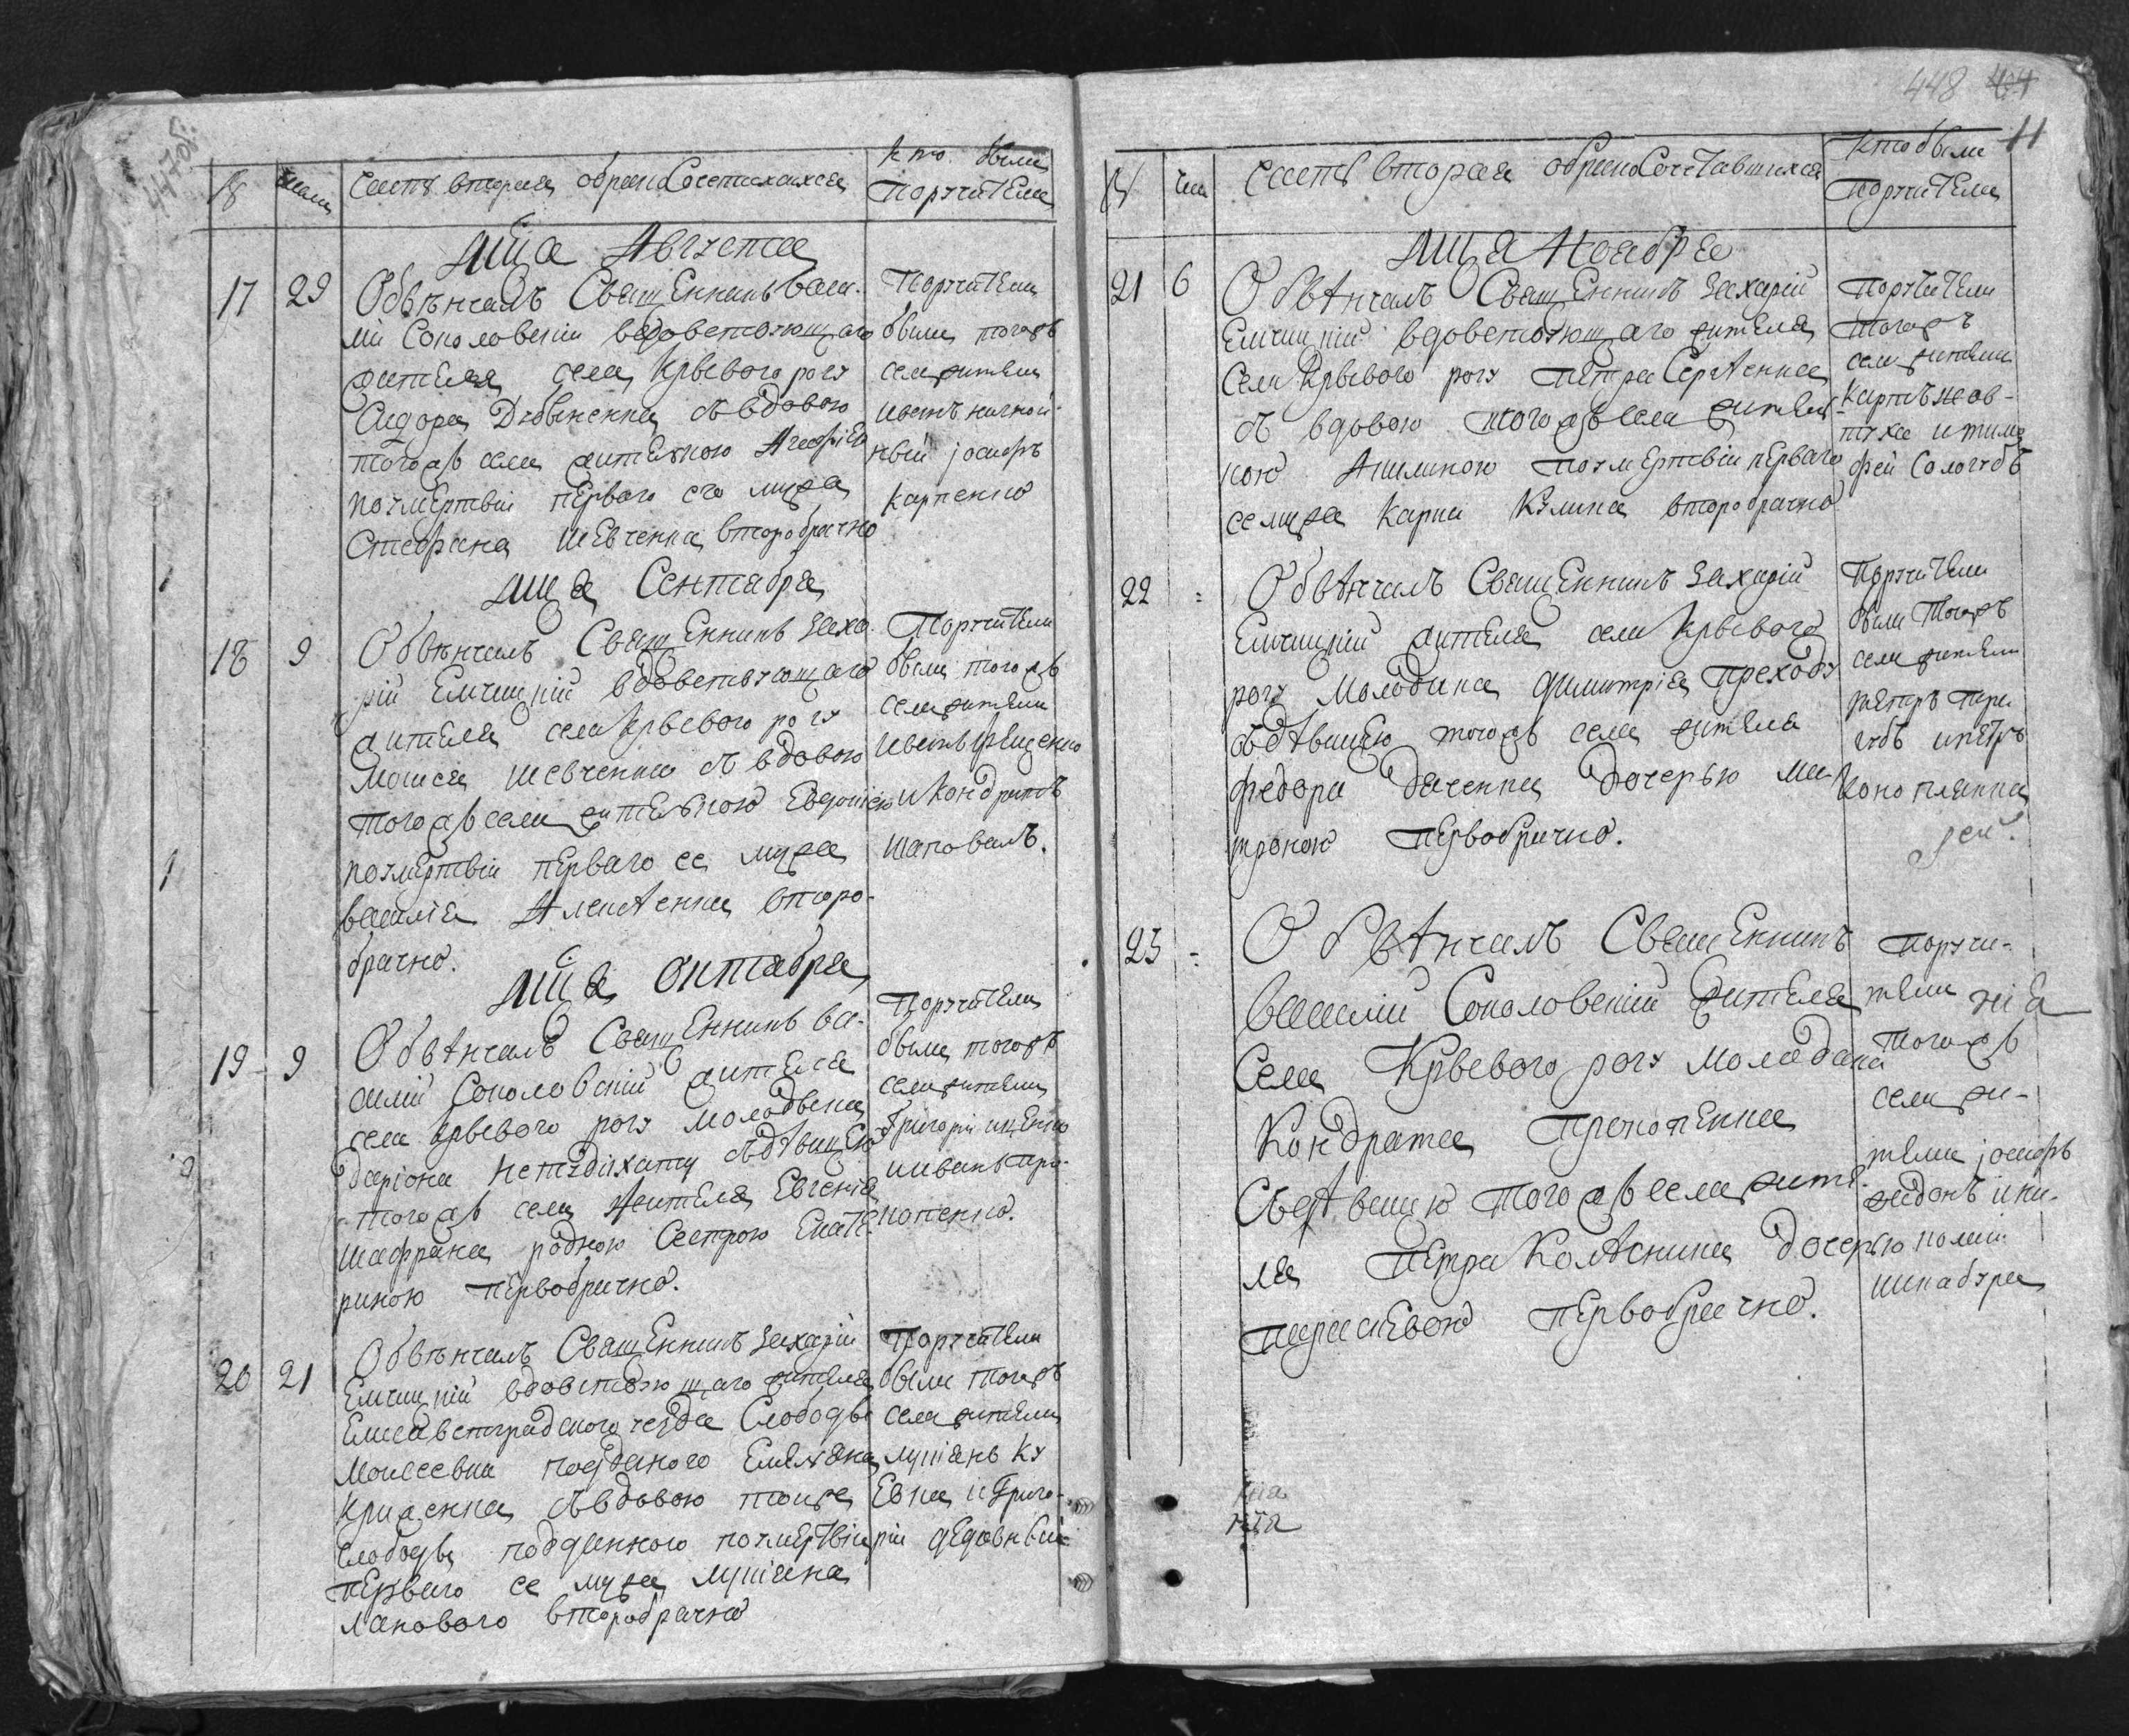 447об.
№ число Часть вторая обракосочетахахся кто были поручители
мца Августа
17 29 Обвѣнчалъ Священникъ Васи-
лій Соколовскій вдовствующаго
жителя села Крывого рогу
Сидора Дзюбиненка съ вдовою
тогожъ села жителкою Агафіею
поумертвіи перваго еи мужа
Стефана Шевченка второбрачно
Поручители
были тогожъ
села жители
Иванъ
іосифъ
Карпенко
мца Сентября
18 9 Обвѣнчалъ Священникъ Заха-
рій Елчицкій вдовствующаго
жителя села Крывого рогу
Моисея Шевченка съ вдовою
тогожъ села жителкою Евдокіею
поумертвіи перваго ее мужа
Василія Алексѣенка второ-
брачно.
Поручители
были тогожъ
села жители
Иванъ Ященко
и Кондратъ
Шаповалъ.
мца Октября
19 9 Обвѣнчалъ Священникъ Ва-
силій Соколовскій жителя
села Крывого рогу молодыка
Даріона Непудихату съ дѣвицею
тогожъ села жителя Евгенія
Шафрана родною Сестрою Екате-
риною первобрачно.
Поручители
были тогожъ
села жители
Григорій Иценко
и Иванъ Про-
копенко.
20 21 Обвѣнчалъ Священникъ Захарій
Елчицкій вдовствующаго жителя
Елисаветградского уезда Слободы
Моисеевки подданого Емеляна
Криженка съ вдовою тоиже
Слободы подданного поумертвіи
перваго ее мужа Лукіяна
Ланового второбрачно
Поручители
были тогожъ
села жители
Лукіянъ Ку
Евка и Григо-
рій
448 404
11
№ чис Часть вторая обракосочетавшихся Кто были поручители
мца Ноября
21 6 Обвѣнчалъ Священникъ Захарій
Елчицкій вдовствующаго жителя
Села Крывого рогу Петра Сергѣенка
съ вдовою тогожъ села житель-
кою Акилиною поумертвіи перваго
ее мужа Карпа Кулика второбрачно
Поручители
тогожъ
села жители
Карпъ Жов-
туха и Тимо
фей Сологубъ
22 = Обвѣнчалъ Священникъ Захарій
Елчицкій жителя села Крывого
рогу Молодика Димитрія Преходу
съ дѣвицею тогожъ села жителя
Федора Даченка Дочерью Ма-
троною первобрачно.
Поручители
были Тогожъ
села жители
Петръ Пере
губъ и Петръ
Коноплянка
23 = Обвѣнчалъ Священникъ
Василій Соколовскій жителя
Села Крывого рогу молодика
Кондрата Прокопенка
съ дѣвицею тогожъ села жите-
ля Петра Колѣсника Дочерью
Параскевою первобрачно.
Поручи-
тели
тогожъ
села жи-
тели іосифъ
Жидокъ и Ни-
колай
Шкабура